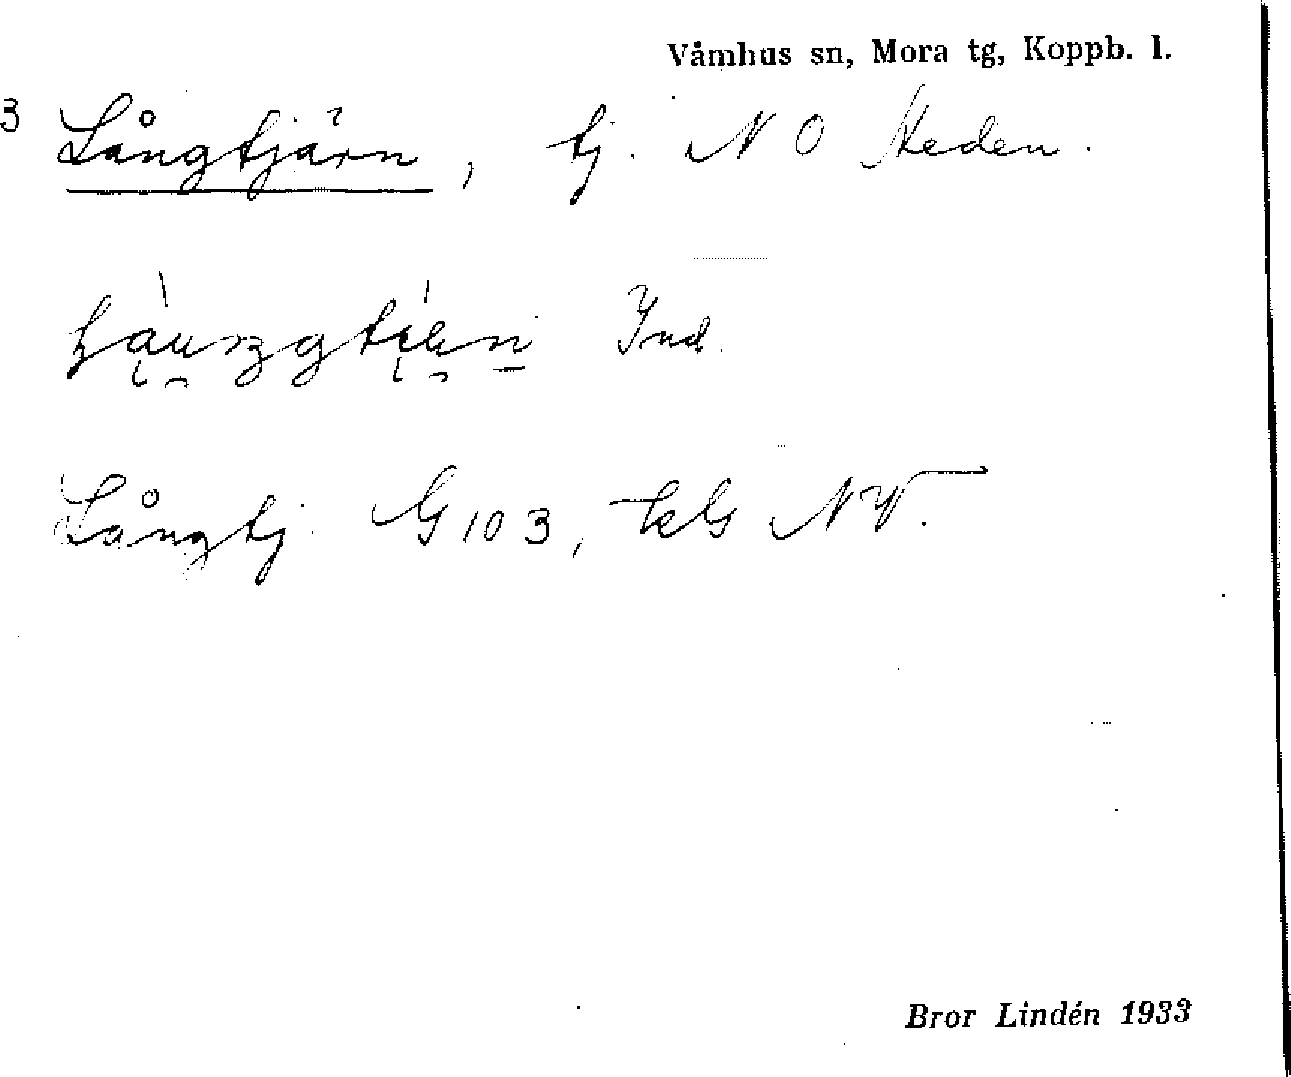 Våmhus sn, Mora tg, Koppb. l.
3 Långtjärn, tj. N O Heden.
Ind.
Långtj. G 103, NV.
Bror Lindén 1933